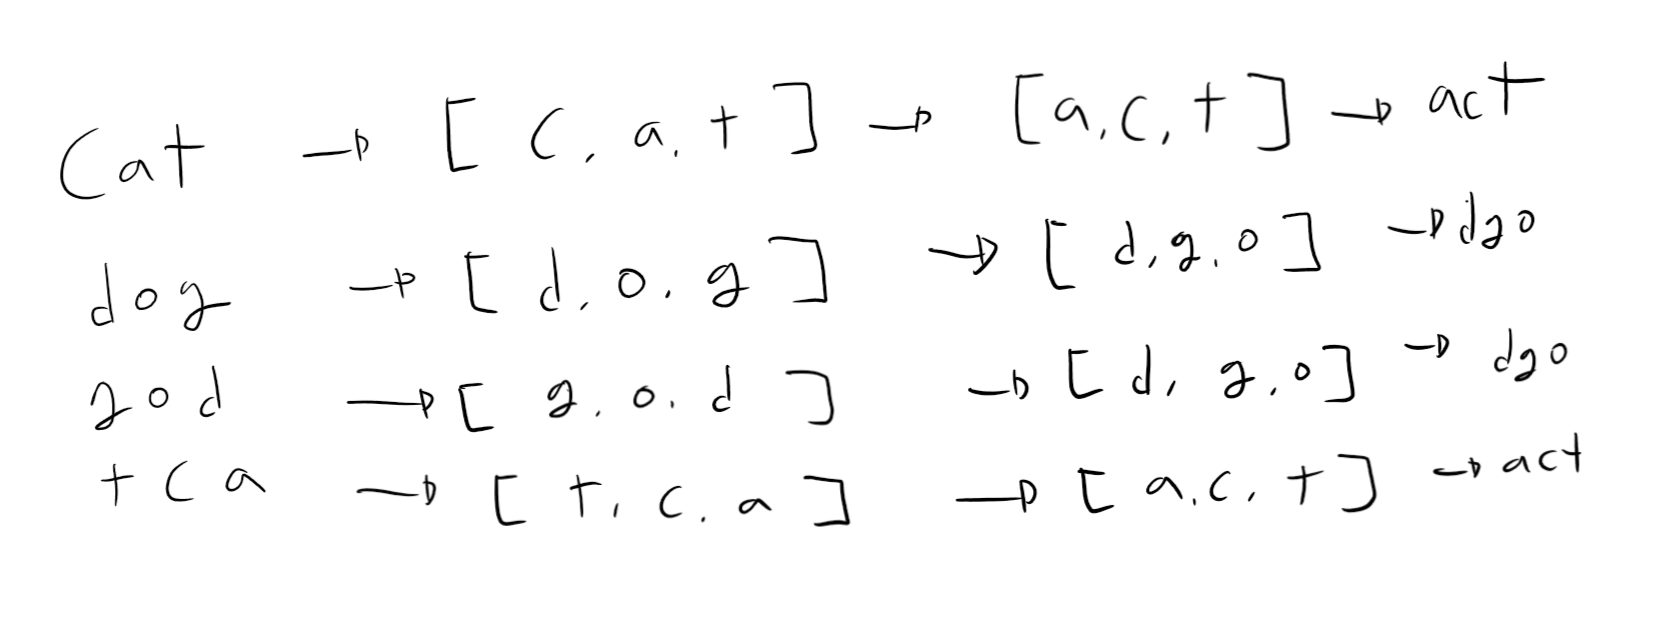 Cat → [ C, a, t ] → [a, c, t ] → act
dog → [ d, o, g ] → [ d, g, o ] → dgo
god → [ g, o, d ] → [ d, g, o ] → dgo
t c a → [ t, c, a ] → [ a, c, t ] → act